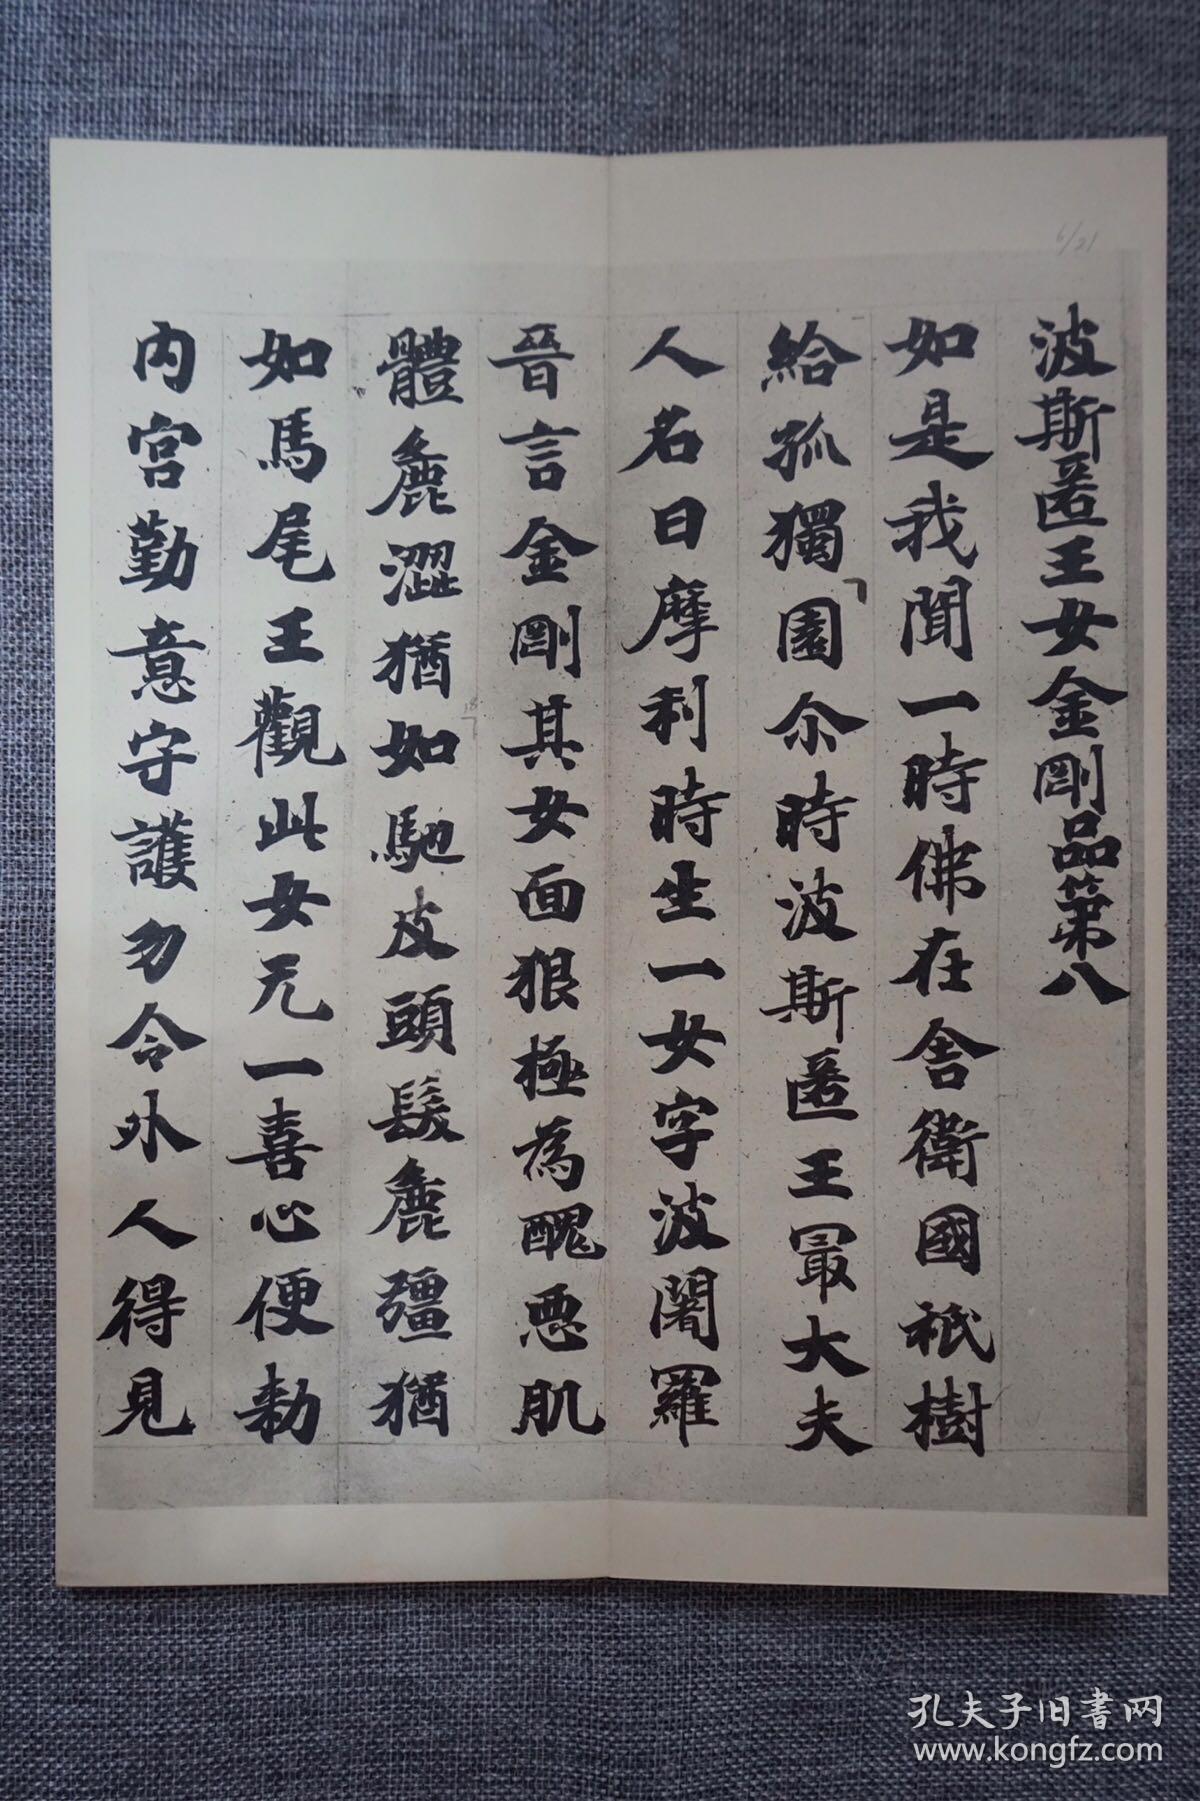 波斯匿王女金剛品第八
如是我聞一時佛在舍衛國祇樹
給孤獨園尒時波斯匿王最大夫
人名曰摩利時生一女字波闍羅
晉言金剛其女面狠極為醜惡肌
體麁澀猶如馳皮頭髮麁彊猶
如馬尾王觀此女无一喜心便勅
内宮勤意守護勿令外人得見
6/21
孔夫子旧書网
www.kongfz.com